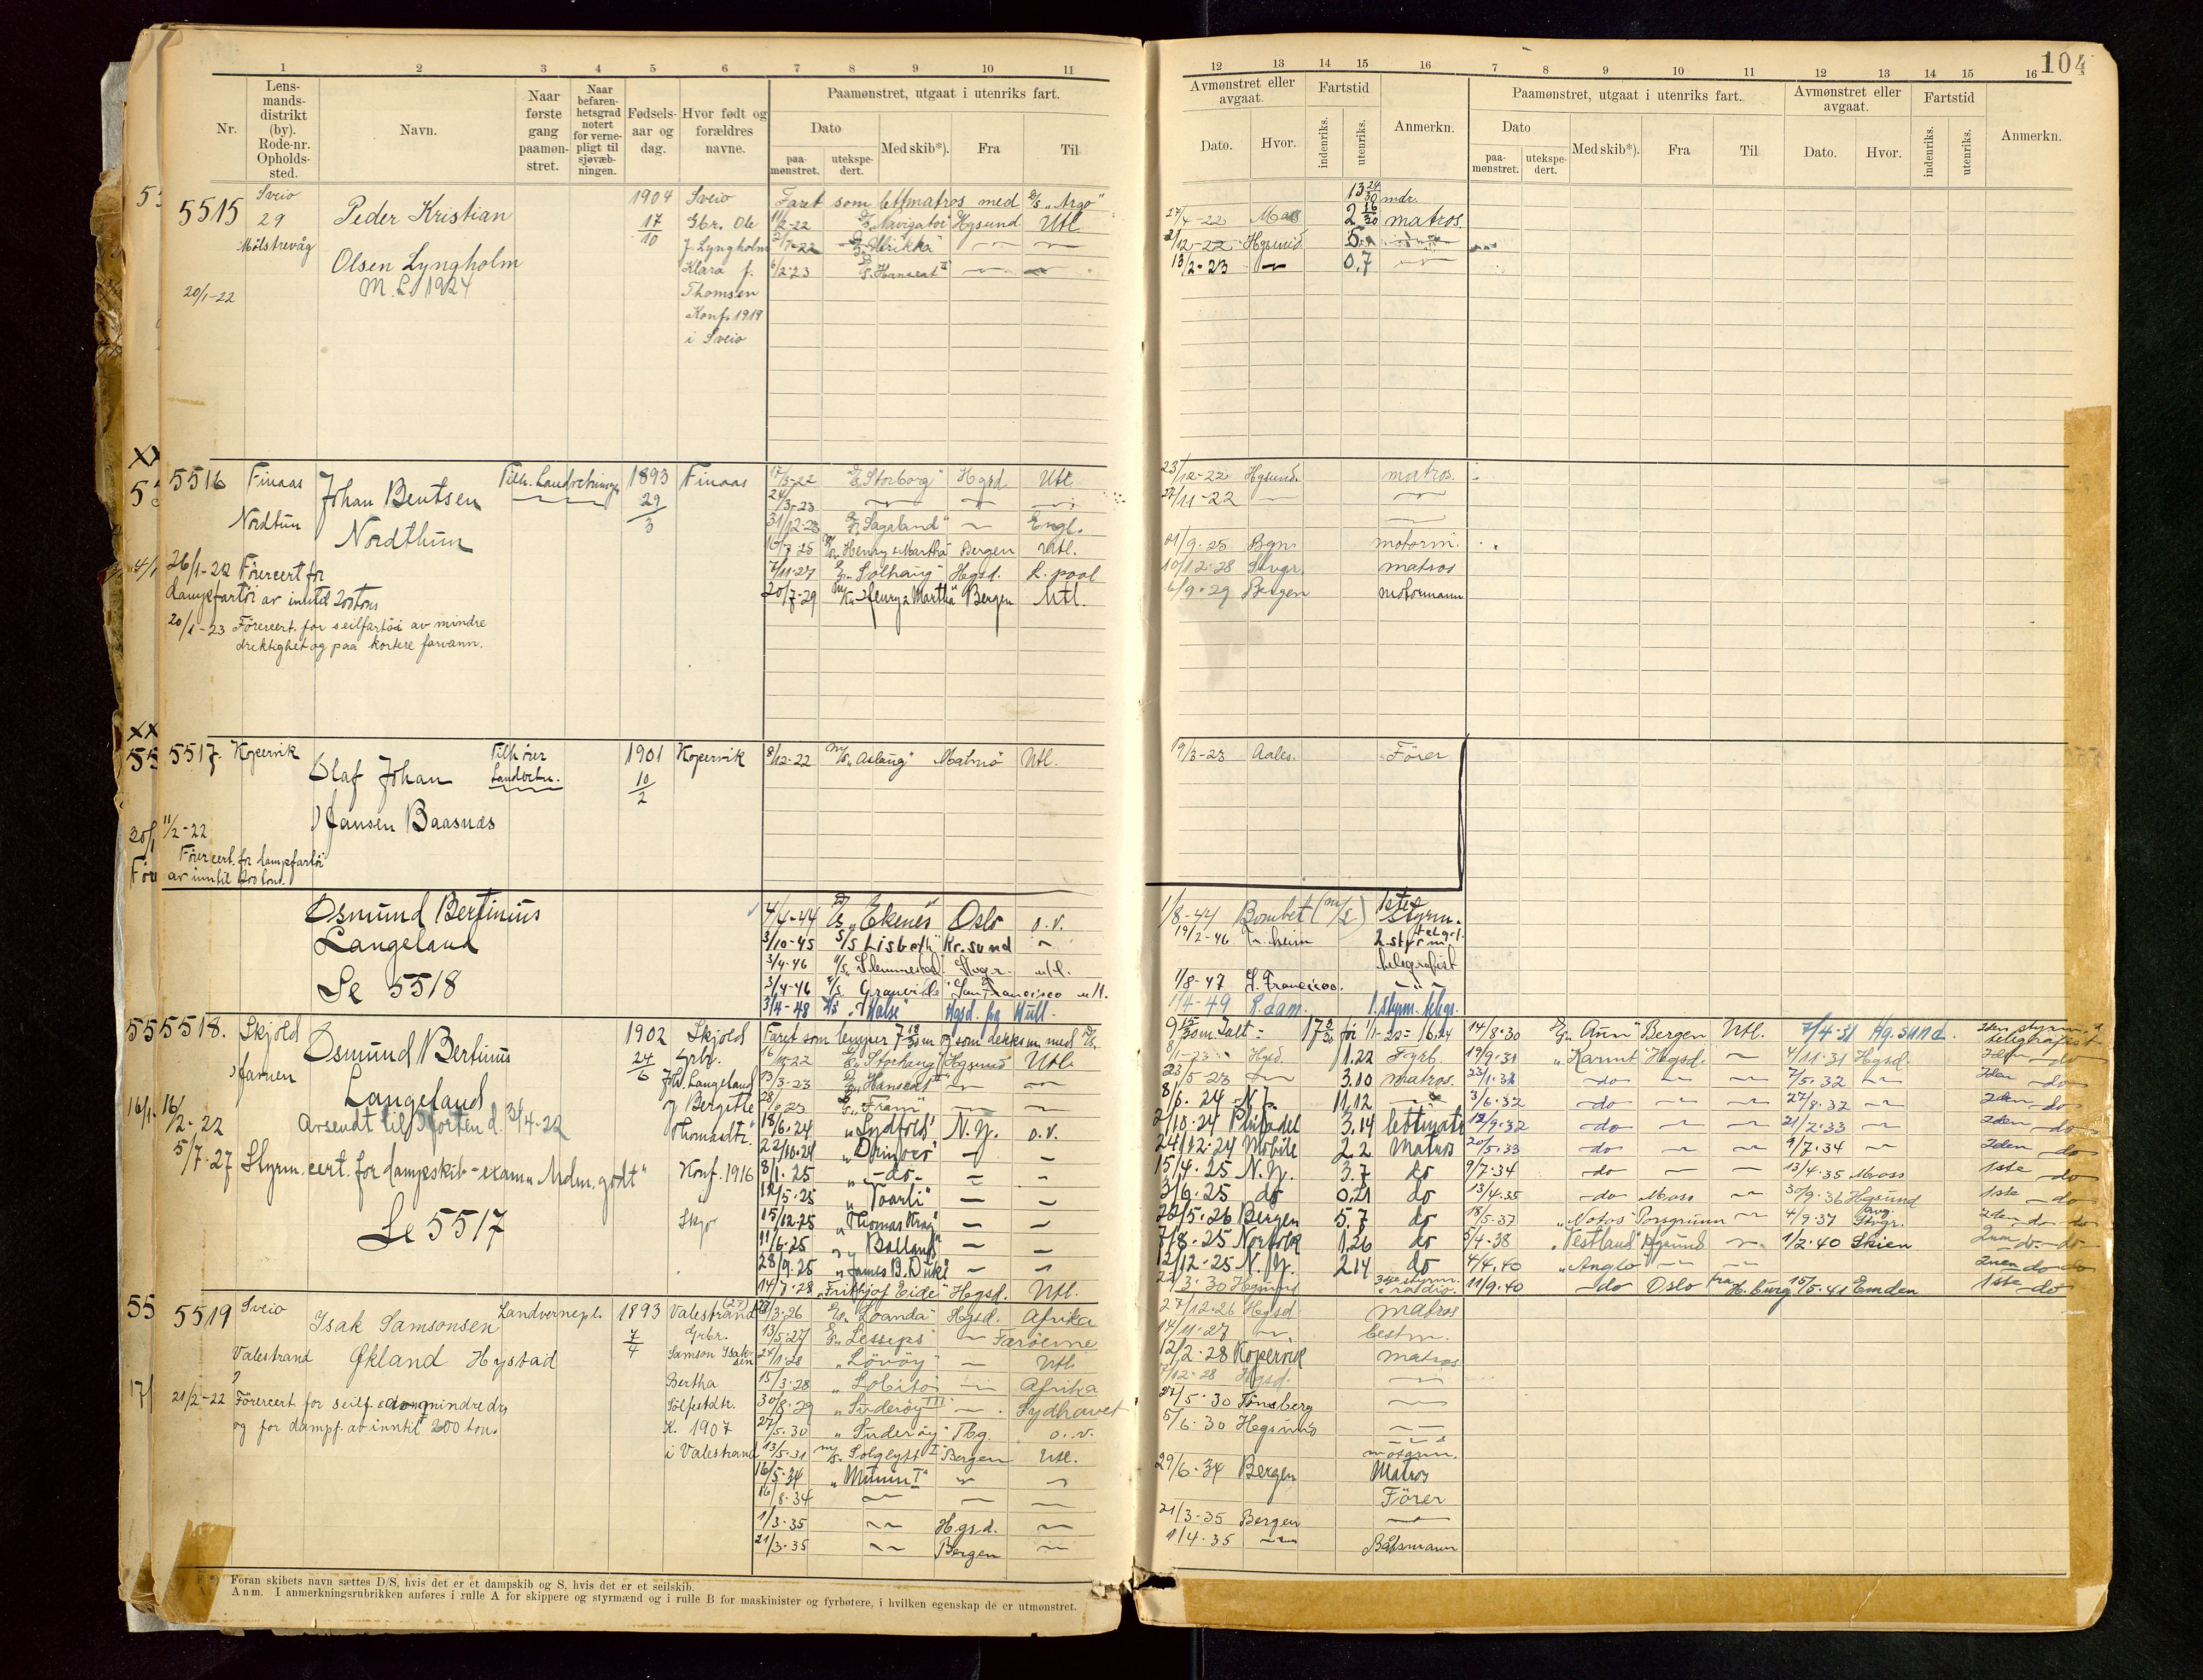 104
1 2 3 4 5 6 7 8 9 10 11
12 13 14 15 16 7 8 9 10 11 12 13 14 15 16
Nr.
Lens-mands-distrikt (by). Rode-nr. Opholds-sted.
Navn.
Naar første gang paamøn-stret.
Naar befaren-hetsgrad notert for verne-pligt til sjøvæb-ningen.
Fødsels-aar og dag.
Hvor født og forældres navne.
Paamønstret, utgaat i utenriks fart.
Dato
paa-mønstret.
utekspe-dert.
Med skib*).
Fra
Til
Avmønstret eller avgaat.
Dato.
Hvor.
Fartstid
indenriks.
utenriks.
Anmerkn.
Paamønstret, utgaat i utenriks fart.
Dato
paa-mønstret.
utekspe-dert.
Med skib*).
Fra
Til
Avmønstret eller avgaat.
Dato.
Hvor.
Fartstid
indenriks.
utenriks.
Anmerkn.
5515 Sveio 29 Mølstrevåg
Peder Kristian
Olsen Lyngholm
M. L. 1924
20/1-22
1904 17/10
Sveio
Gbr. Ole
J. Lyngholm
Klara f.
Thomsen
Konf. 1919
i Sveio
Faret som lettmatros med D/S "Argo" 13 24/30 mdr.
11/2-22 D/S "Navigator" Hgsund Utl. 27/4-22 2 16/30 matros.
"Ulrikka" 21/12-22 Hgsund 5
6/2-23 "Hanseat II" 13/2-23 0.7
5516 Finaas
Nordtun
Johan Bentsen
Nordthun
Tilh. Landvetningen
1893 29/3
Finaas
26/1-22 Førercert for
dampfartøi av inntil 200 tons
20/1-23 Førercert. for seilfartøi av mindre
drektighet og paa kortere farvann.
17/3-22 D/S "Storborg" Hgsd. Utl. 23/12-22 Hgsund. matros.
24/3-23 27/11-22
31/12-23 "Sagaland" Engl.
16/7-25 "Henry & Martha" Bergen Utl. 21/9-25 Bgn. motorm.
7/11-27 "Solhaug" Hgsd. L.pool 10/12-28 Stvgr. matros
20/7-29 "Henry & Martha" Bergen Utl. 6/9-29 Bergen motormann
5517. Kopervik
Olaf Johan
Jansen Baasnæs
Tilhører
Landvetn.
1901 10/2
Kopervik
8/12-22 M/S "Aslaug" Malmø Utl. 19/3-23 Aales. Fører
11/2-22
Førercert. for dampfartøi
av inntil 200 tons.
Osmund Bertinius
Langeland
Se 5518
4/4-44 D/S "Ekenes" Oslo o.v. 1/8-44 Bombet (M/S) 1ste styrm.
3/10-45 S/S Lisbeth Kr.sund 19/2-46 Tr.heim 2. styrm. telegr.
3/4-46 "Slemmestad" Stvgr. utl. telegrafist
3/4-46 Granville San Francisco utl. 1/8-47 S. Francisco.
3/4-48 "Halse" Hgsd. fra Hull. 1/4-49 R.dam. 1. styrm. telegr.
5518. Skjold
Osmund Bertinius
Langeland
Avsendt til Horten d. 3/4-22
16/2-22
5/7-27 Styrm. cert. for dampskib - examen Mdm. "godt"
Se 5517
1902 24/6
Skjold
Grbr.
Joh. Langeland
og Bergitte
Thomasdtr.
Konf. 1916
Skjo
Faret som lemper 7 18/30 m og som dekksm. med D/S
"Storhaug" Hgsund Utl. 8/1-23 Hgsd. 1.22 Fyrb.
13/3-23 "Hanseat II" 23/5-23 3.10 matros.
"Fram" 8/6.24 N.Y. 11.12
18/6.24 "Lydfold" N.Y. o.v. 2/10.24 Philadel 3.14 lettmatr
22/10.24 "Orinoco" 24/12.24 Mobile 2.2 Matros
8/1.25 do 15/4.25 N.Y. 3.7 do
19/5.25 "Toarli" 3/6.25 do 0.21 do
15/12-25 "Thomas Krag" 22/5.26 Bergen 5.7 do
11/6.25 "Balland" 7/8.25 Norfolk 1.26 do
28/9.25 "James B. Duke" 12/12.25 N.Y. 2.14 do
14/7.28 "Frithjof Eide" Hgsd. Utl.
14/8.30 "Ann" Bergen Utl. 7/4-31 Hg.sund. 2den styrm. & telegrafist
19/9.31 "Karmt" Hgsd. 4/11.31 Hgsd.
23/1.32 do 7/5.32 2den do
3/6.32 do 27/8.32 2den do
12/9.32 do 21/2.33 2den do
20/5.33 do 9/7.34 2den do
9/7.34 do 13/4.35 Moss 1ste do
13/4.35 do Moss 30/9.36 Hgsund 1ste do
18/5.37 "Notos" Porsgrunn 4/9.37 Stvgr. 2den do do
5/4-38 "Vestland" Hgsund 1/2.40 Skien do do
4/4.40 "Anglo" 2nen do do
11/9.40 do Oslo fra H.burg 15/5.41 Emden 1ste do
5519 Sveio
Valestrand
Isak Samsonsen
Økland Hystad
Landvernepl. 1893 7/4
Valestrand
Grbr.
Samson Isaksen
Bertha
Solfestdtr.
K. 1907
i Valestrand
21/2-22 Førercert. for seilf. av mindre dr.
og for dampf. av inntil 200 ton.
"Loanda" Hgsd. Afrika 27/12.26 Hgsd matros
13/5.27 "Lesseps" Færøerne 14/11.27 bestm.
24/1.28 "Løvøy" Utl. 12/2.28 Kopervik matros
15/3.28 "Lobito" Afrika 7/12.28 Hgsd.
30/8.29 "Suderøy III" Sydhavet 27/5.30 Tønsberg
27/5.30 "Suderøy" Tbg. o.v. 5/6.30 Hgsund
13/5.31 "Solglytt I" Bergen Utl.
16/5.34 "Minun I" 29/6.34 Bergen Matros
16/8.34 Fører
1/3.35 Hgsd. 21/3-35 Bergen
21/3.35 Bergen 1/4.35 Båtsmann
*) Foran skibets navn sættes D/S, hvis det er et dampskib og S, hvis det er et seilskib.
Anm. I anmerkningsrubrikken anføres i rulle A for skippere og styrmænd og i rulle B for maskinister og fyrbøtere, i hvilken egenskap de er utmønstret.